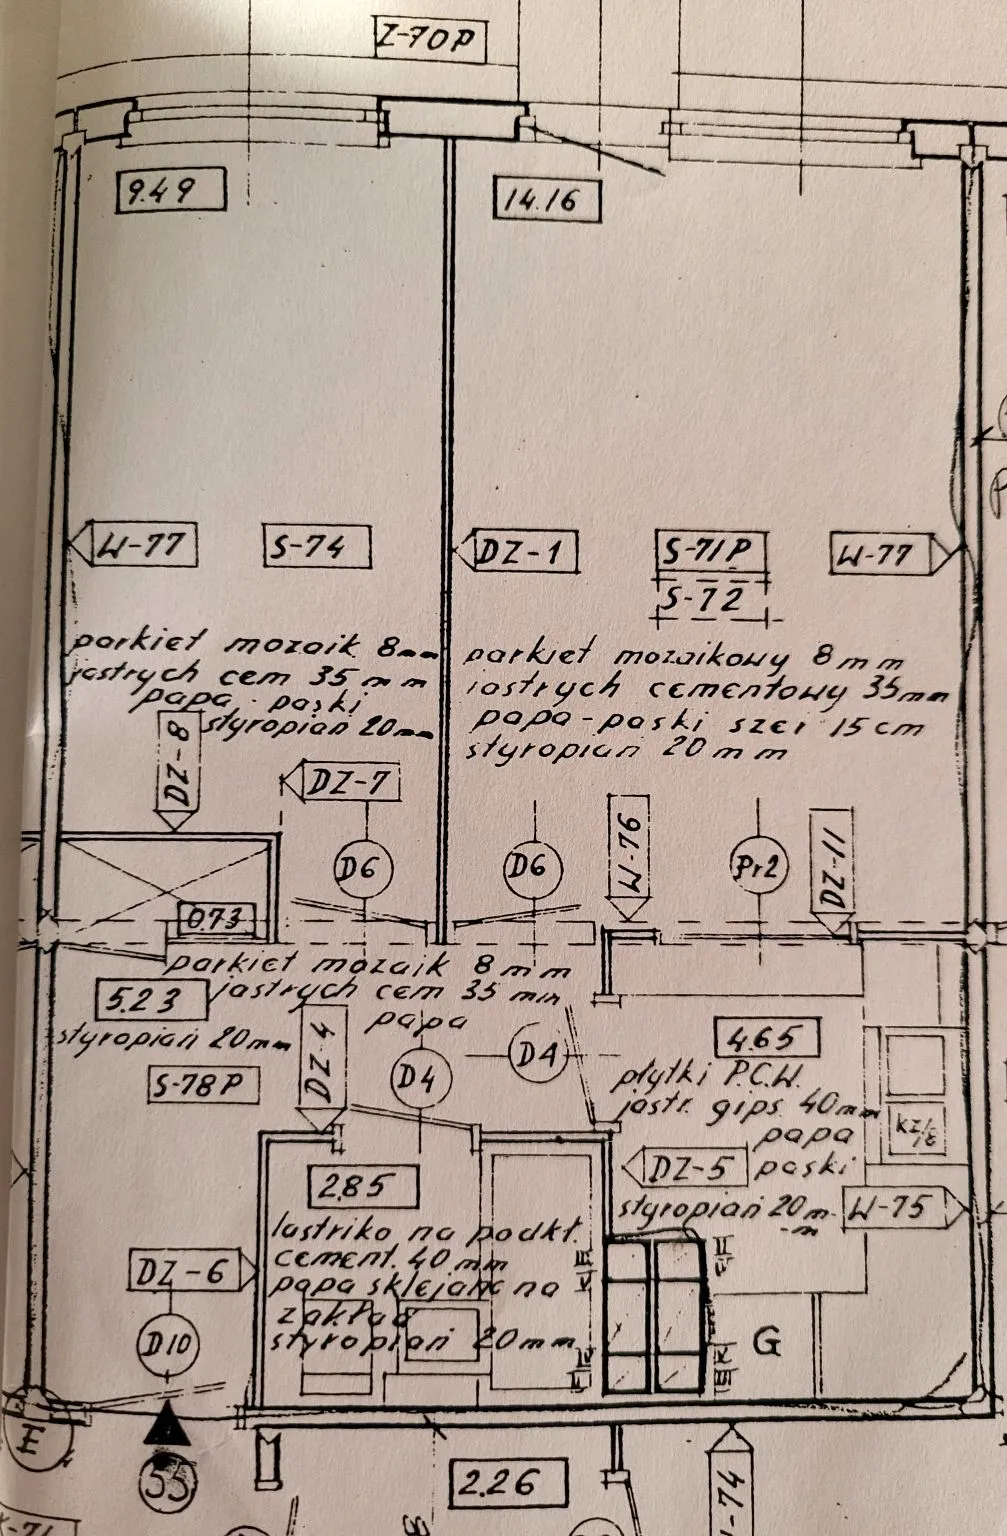 Z-70P
9.49
14.16
W-77
S-74
DZ-1
S-71P
S-72
W-77
parkiet mozaik 8mm
jastrych cem 35 mm
papa - paski
styropian 20mm
parkiet mozaikowy 8mm
jastrych cementowy 35mm
papa-paski szer 15cm
styropian 20mm
DZ-8
DZ-7
D6
D6
W-76
Pr2
DZ-11
0.73
parkiet mozaik 8mm
jastrych cem 35 mm
papa
styropian 20mm
5.23
S-78P
DZ-4
D4
D4
4.65
płytki P.C.W.
jastr. gips. 40mm
papa
paski
styropian 20m-
-m
DZ-5
W-75
2.85
lastriko na podkł.
cement. 40 mm
papa sklejana na
zakład
styropian 20mm
DZ-6
D10
G
55
2.26